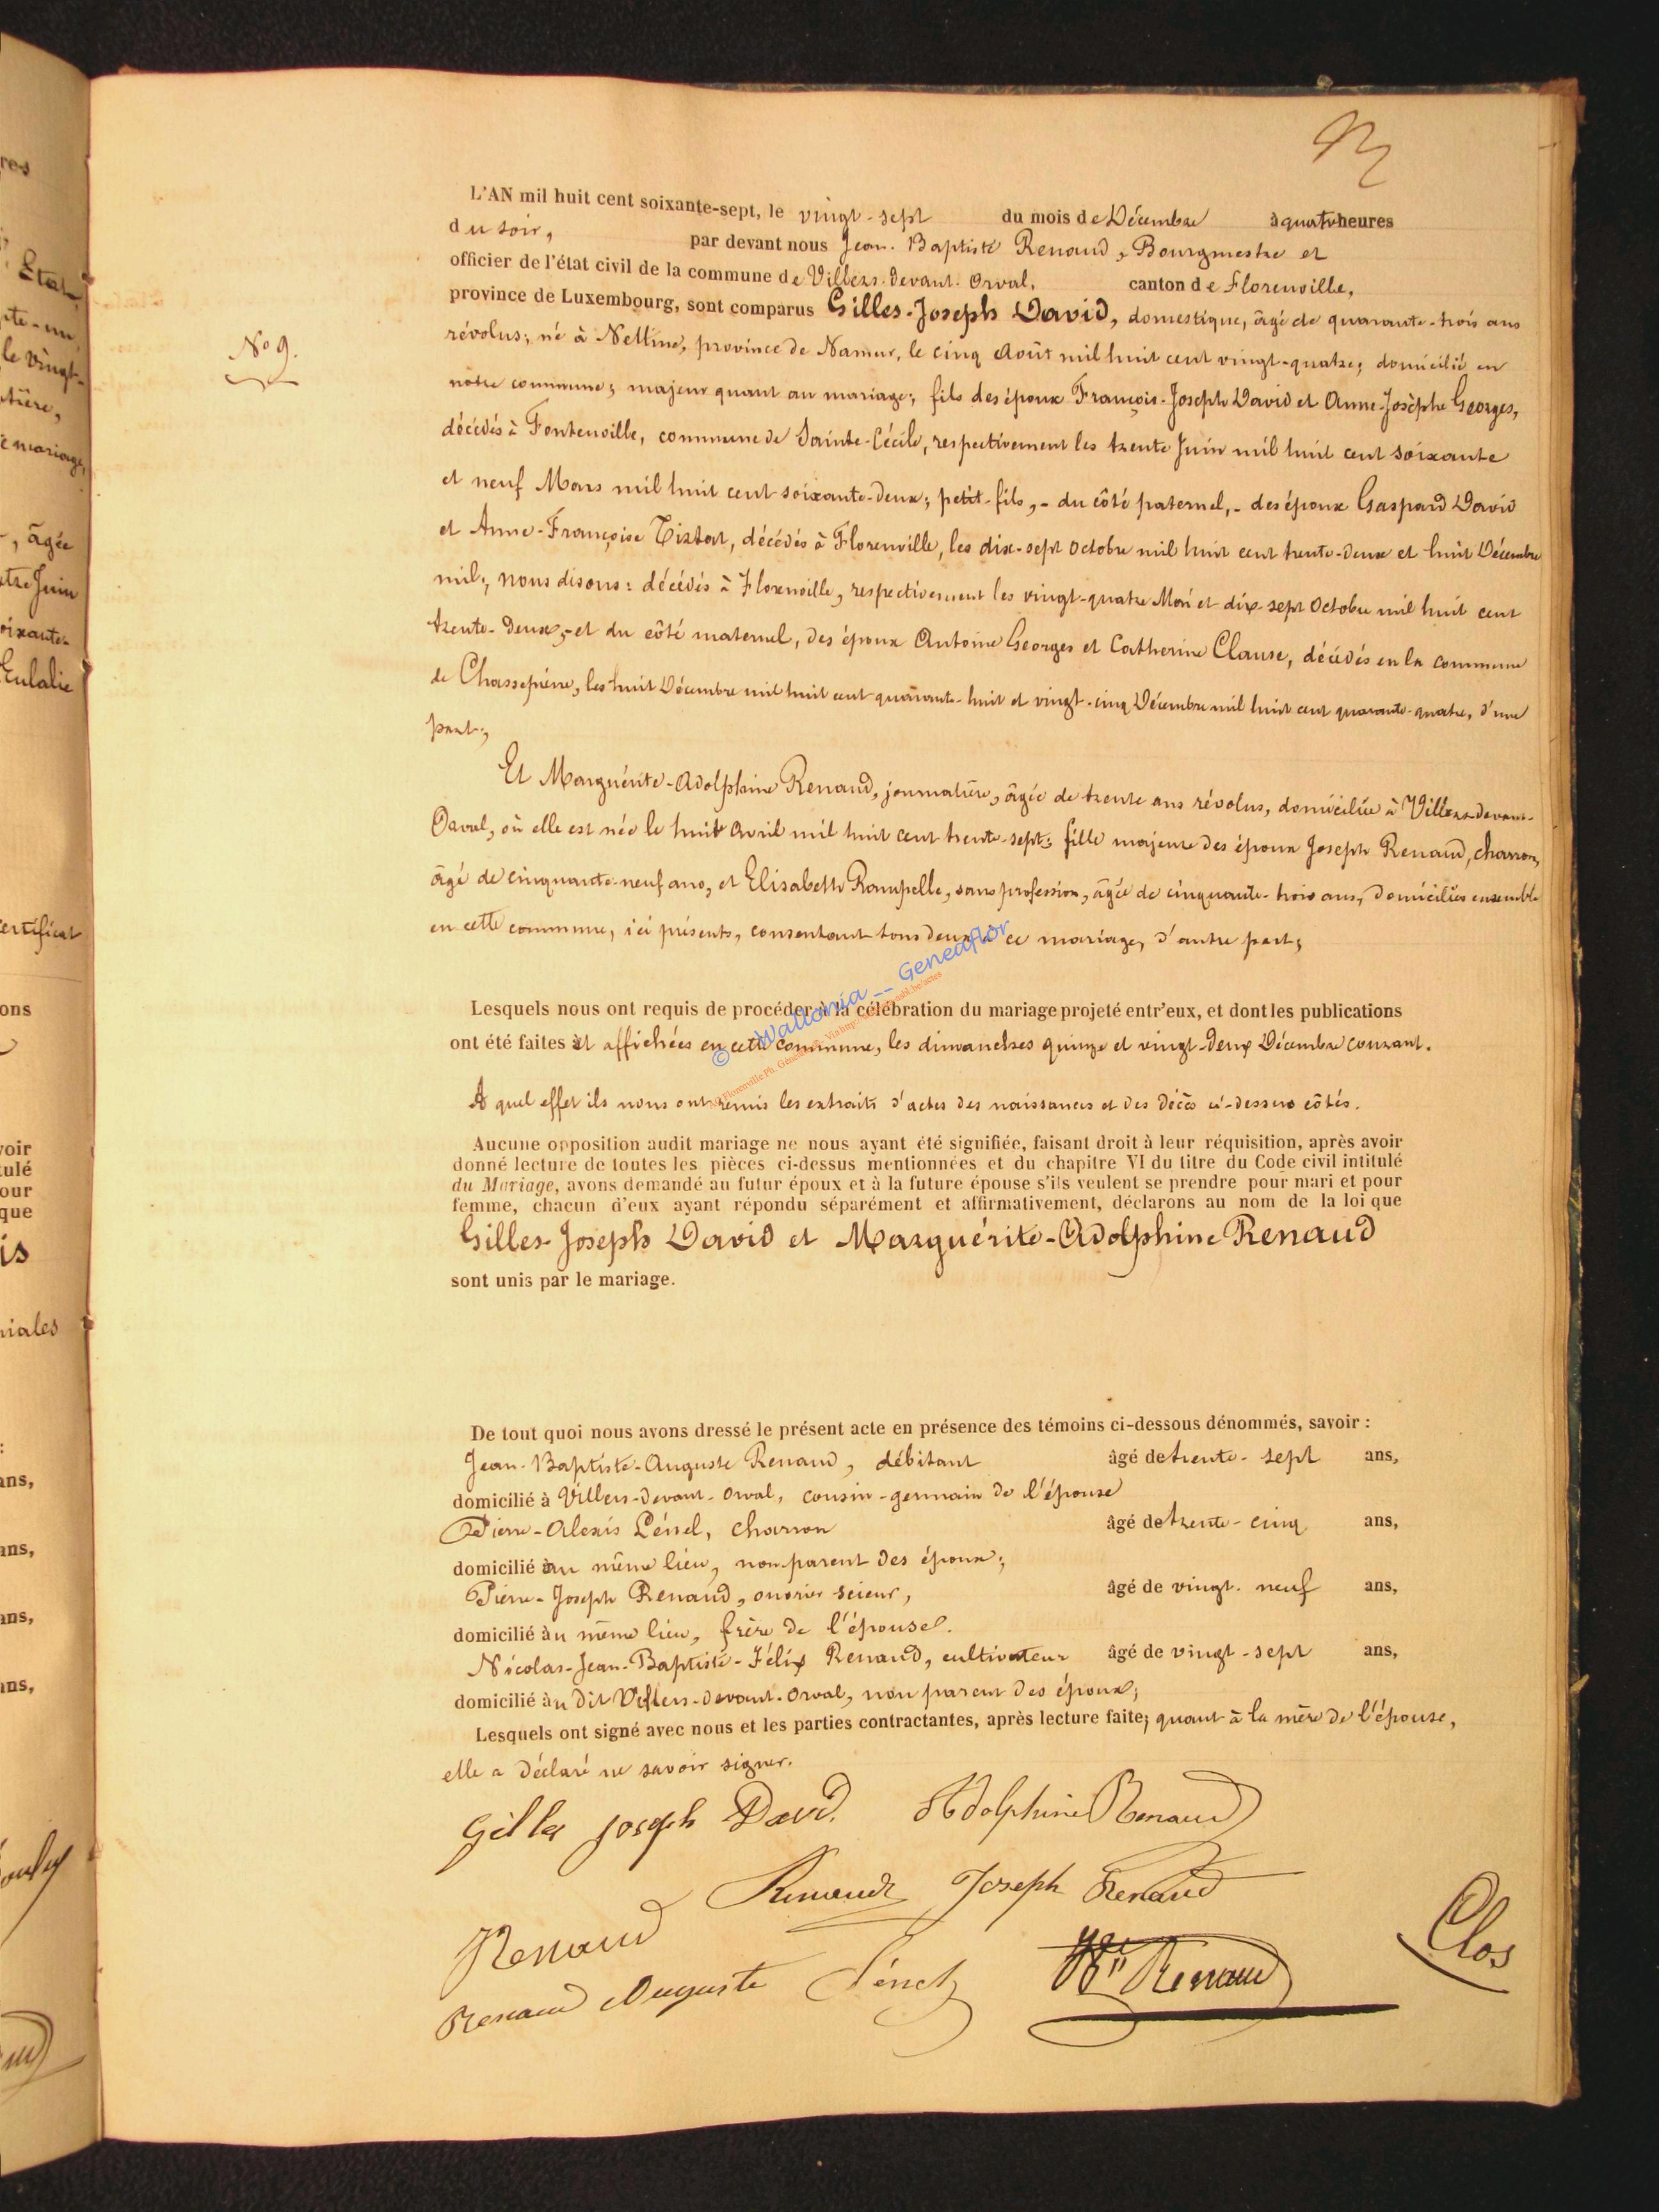 L'AN mil huit cent soixante-sept, le vingt-sept du mois de Décembre à quatre heures
du soir, par devant nous Jean-Baptiste Renaud, Bourgmestre et
officier de l'état civil de la commune de Villers-devant-Orval, canton de Florenville,
province de Luxembourg, sont comparus Gilles-Joseph David, domestique, âgé de quarante-trois ans
révolus; né à Nettine, province de Namur, le cinq Août mil huit cent vingt-quatre; domicilié en
notre commune; majeur quant au mariage; fils des époux François-Joseph David et Anne-Josèphe Georges,
N° 9.
décédés à Fontenoille, commune de Sainte-Cécile, respectivement les trente Juin mil huit cent soixante
et neuf Mars mil huit cent soixante-deux; petit-fils, - du côté paternel, - des époux Gaspard David
et Anne-Françoise décédés à Florenville, les dix-sept Octobre mil huit cent trente-deux et huit Décembre
mil; nous disons: décédés à Florenville, respectivement les vingt-quatre Mai et dix-sept Octobre mil huit cent
trente-deux, - et du côté maternel, des époux Antoine Georges et Catherine Clause, décédés en la commune
de Chassepierre, les huit Décembre mil huit cent quarante-huit et vingt-cinq Décembre mil huit cent quarante-quatre, d'une
part;
Et Marguérite-Adolphine Renaud, journalière, âgée de trente ans révolus, domiciliée à Villers-devant-
Orval, où elle est née le huit Avril mil huit cent trente-sept; fille majeure des époux Joseph Renaud, charron,
âgé de cinquante-neuf ans, et Elisabeth Rampelle, sans profession, âgée de cinquante-trois ans, domiciliés ensemble
en cette commune, ici présents, consentant tous deux à ce mariage, d'autre part;
Lesquels nous ont requis de procéder à la célébration du mariage projeté entr'eux, et dont les publications
ont été faites et affichées en cette commune, les dimanches quinze et vingt-deux Décembre courant.
A quel effet ils nous ont remis les extraits d'actes des naissances et des décès ci-dessus côtés.
Aucune opposition audit mariage ne nous ayant été signifiée, faisant droit à leur réquisition, après avoir
donné lecture de toutes les pièces ci-dessus mentionnées et du chapitre VI du titre du Code civil intitulé
du Mariage, avons demandé au futur époux et à la future épouse s'ils veulent se prendre pour mari et pour
femme, chacun d'eux ayant répondu séparément et affirmativement, déclarons au nom de la loi que
Gilles-Joseph David et Marguérite-Adolphine Renaud
sont unis par le mariage.
De tout quoi nous avons dressé le présent acte en présence des témoins ci-dessous dénommés, savoir :
Jean-Baptiste-Auguste Renaud, débitant âgé de trente-sept ans,
domicilié à Villers-devant-Orval, cousin-germain de l'épouse
Pierre-Alexis charron âgé de trente-cinq ans,
domicilié au même lieu, non parent des époux;
Pierre-Joseph Renaud, ouvrier scieur, âgé de vingt-neuf ans,
domicilié au même lieu, frère de l'épouse.
Nicolas-Jean-Baptiste-Félix Renaud, cultivateur âgé de vingt-sept ans,
domicilié au dit Villers-devant-Orval, non parent des époux;
Lesquels ont signé avec nous et les parties contractantes, après lecture faite; quant à la mère de l'épouse,
elle a déclaré ne savoir signer.
Gilles Joseph David. Adolphine Renaud
Renaud Joseph Renaud
Renaud
Clos
Renaud Auguste Renaud
© Wallonia -- Geneaflor